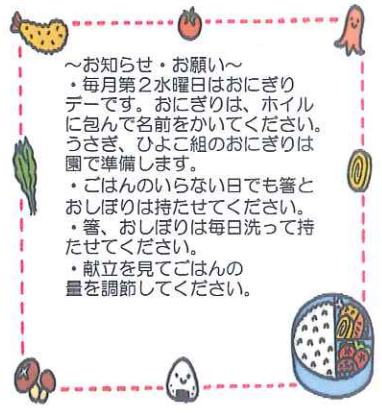 ～お知らせ・お願い～
・毎月第２水曜日はおにぎり
デーです。おにぎりは、ホイル
に包んで名前をかいてください。
うさぎ、ひよこ組のおにぎりは
園で準備します。
・ごはんのいらない日でも箸と
おしぼりは持たせてください。
・箸、おしぼりは毎日洗って持
たせてください。
・献立を見てごはんの
量を調節してください。